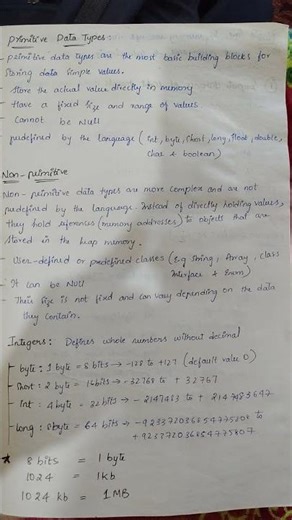 Primitive Data Types
- primitive data types are the most basic building blocks for
storing data simple values.
- store the actual value directly in memory
- Have a fixed size and range of values
- Cannot be Null
- predefined by the language (int, byte, short, long, float, double,
char & boolean)
Non-primitive
Non-primitive data types are more complex and are not
predefined by the language. Instead of directly holding values,
they hold references (memory addresses) to objects that are
stored in the heap memory.
- User-defined or predefined classes (E.g String, Array, class
Interface & Enum)
- It can be Null
- Their size is not fixed and can vary depending on the data
they contain.
Integers: Defines whole numbers without decimal
byte: 1 byte = 8 bits → -128 to +127 (default value 0)
short: 2 byte = 16 bits → -32768 to + 32767
int: 4 byte = 32 bits → - 2147483 to + 2147483647
long: 8 byte = 64 bits → -923372036854775808 to
+923372036854775807
* 8 bits = 1 byte
1024 = 1kb
1024 kb = 1 MB